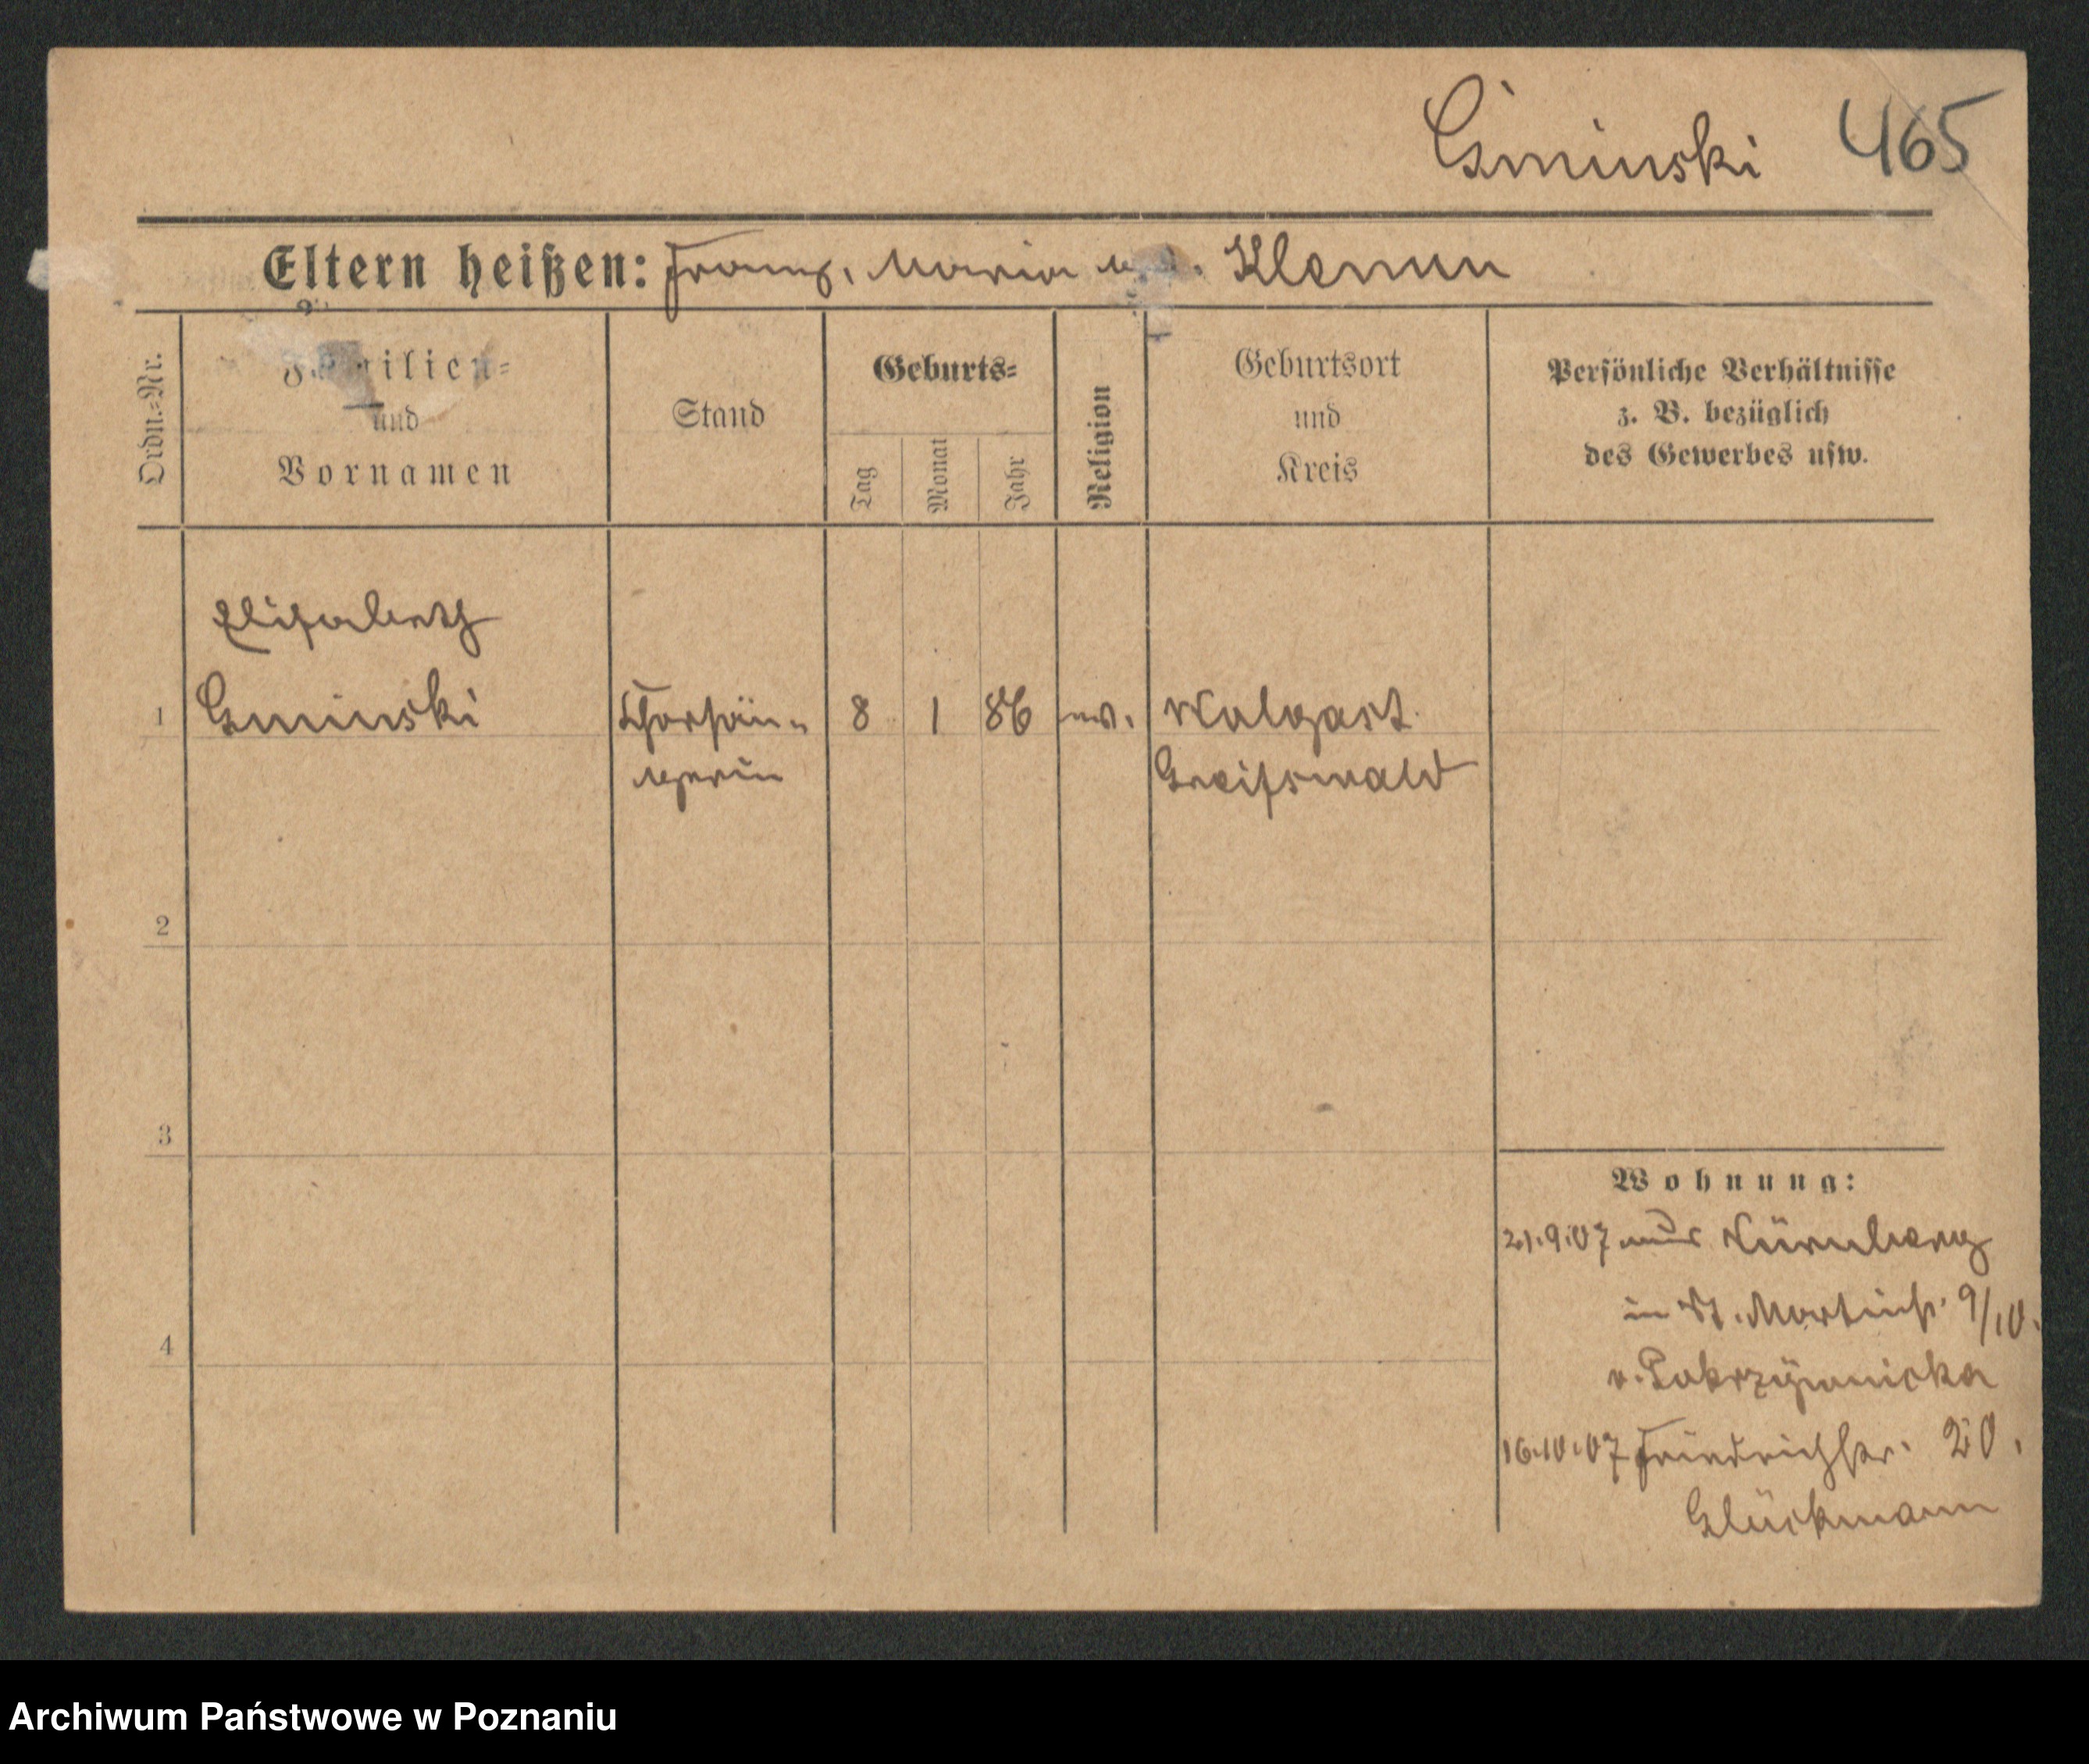 Gminski 465
Eltern heißen: Franz, Maria Klemun
Ordn.=Nr.
Familien=
und
Vornamen
Stand
Geburts=
Tag
Monat
Jahr
Religion
Geburtsort
und
Kreis
Persönliche Verhältnisse
z. B. bezüglich
des Gewerbes usw.
Elisabeth
1 Gminski Chorsän= 8 1 86 ev. Wolgast
gerin Greifswald
2
3
4
Wohnung:
21.9.07 aus Nürnberg
in St. Martinstr. 9/10.
v. Pokrzywnicka
16.10.07 Friedrichstr. 20.
Glückmann
Archiwum Państwowe w Poznaniu